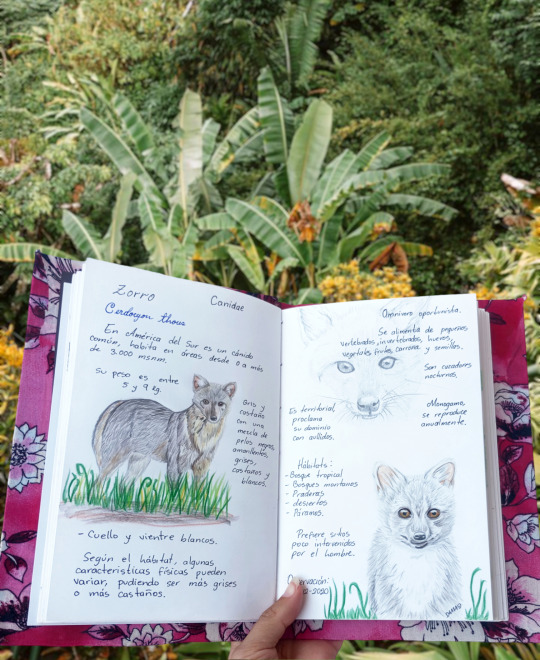 Zorro
Canidae
Cerdocyon thous
En América del Sur es un cánido
común, habita en áreas desde 0 a más
de 3.000 msnm.
Su peso es entre
5 y 9 kg.
Gris y
castaño
con una
mezcla de
pelos negros,
amarillentos,
grises,
castaños y
blancos.
- Cuello y vientre blancos.
Según el hábitat, algunas
características físicas pueden
variar, pudiendo ser más grises
o más castaños.
Omnívoro oportunista.
Se alimenta de pequeños
vertebrados, invertebrados, huevos,
vegetales fruta, carroña y semillas.
Son cazadores
nocturnos.
Es territorial,
proclama
su dominio
con aullidos.
Monogamo,
se reproduce
anualmente.
Hábitats:
- Bosque tropical
- Bosques montanos
- Praderas
- desiertos
- Páramos.
Prefiere sitios
poco intervenidos
por el hombre.
-2020